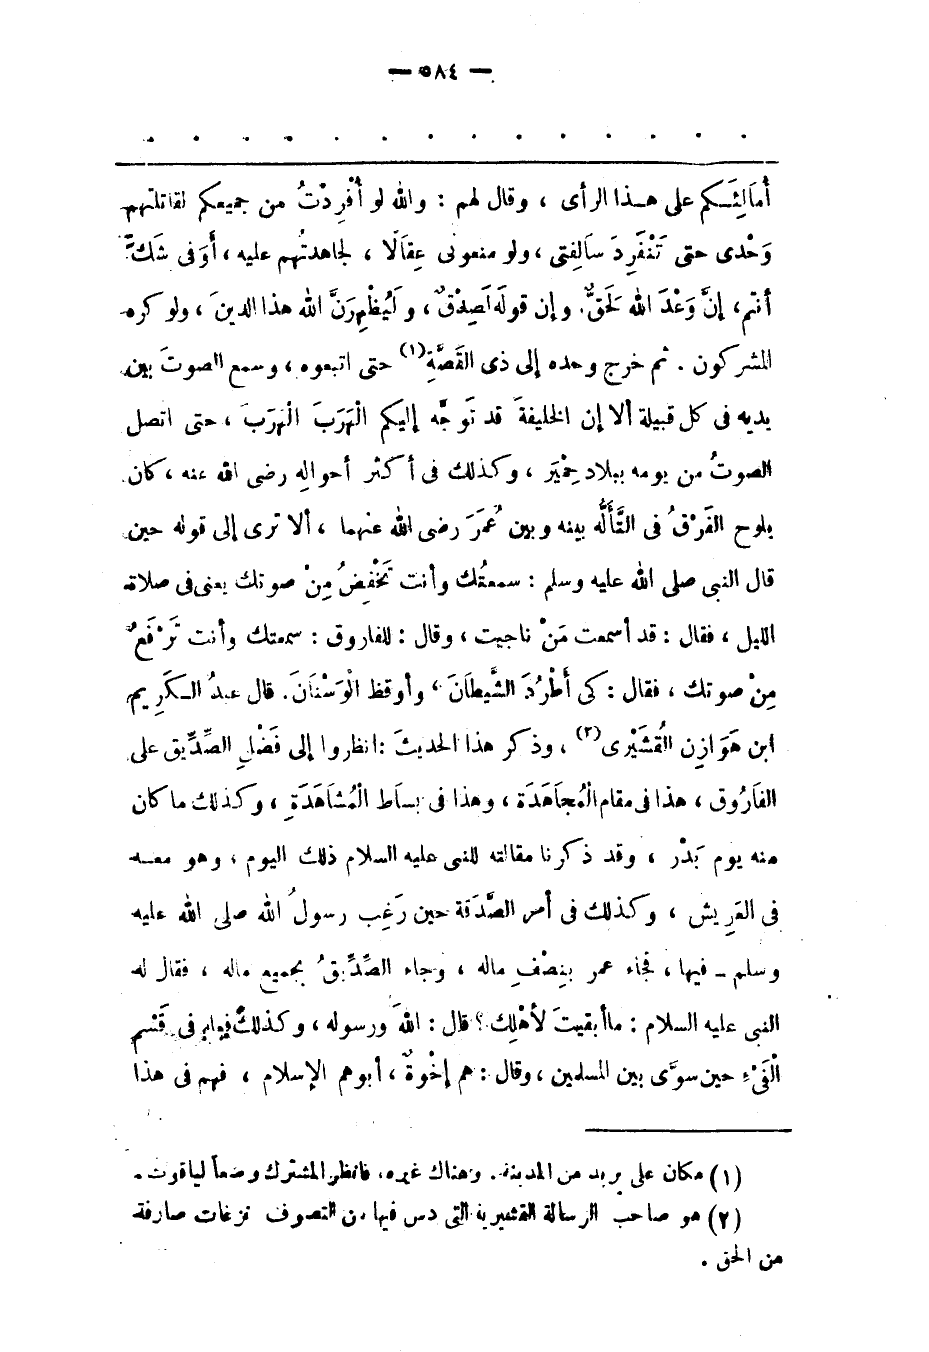 — ٥٨٤ —
. . . . . . . . . . . . . .
أُمَالِئَـكم على هـذا الرأى ، وقال لهم : والله لو أُفْرِدْتُ من جميعكم لقاتلتهم
وَحْدى حتى تَنْفَرِدَ سَالِفتى ، ولو منعونى عِقَالًا ، لجاهدتُهم عليه ، أَوَفى شَكٍّ
أنتم ، إنَّ وَعْدَ الله لَحَقٌّ . وإن قولَه لَصِدْقٌ ، ولَيُظْهِرَنَّ الله هذا الدينَ ، ولو كره
المشركون . ثم خرج وحده إلى ذى القَصَّةِ(١) حتى اتبعوه ، وسمع الصوتَ بين
يديه فى كل قبيلة ألا إن الخليفةَ قد تَوجَّه إليكم الْهَرَبَ الْهَرَبَ ، حتى اتصل
الصوتُ من يومه ببلاد حِمْيَر ، وكذلك فى أكثر أحوالِه رضى الله عنه ، كان
يلوح الفَرْقُ فى التَّأَلُّه بينه وبين عُمَرَ رضى الله عنهما ، ألا ترى إلى قوله حين
قال النبى صلى الله عليه وسلم : سمعتُك وأنت تَخْفِضُ مِنْ صوتك يعنى فى صلاة
الليل ، فقال : قد أسمعت مَنْ ناجيت ، وقال : للفاروق : سمعتك وأنت تَرْفَعُ
مِنْ صوتك ، فقال : كى أَطْرُدَ الشَّيطَانَ ، وأوقظ الْوَسْنَانَ . قال عبدُ الـكَرِيم
ابن هَوَازِن القُشَيْرى(٢) ، وذكر هذا الحديثَ : انظروا إلى فَضْلِ الصِّدِّيق على
الفَارُوق ، هذا فى مقام الْمُجاَهَدَة ، وهذا فى بساَط الْمُشاَهَدَةِ ، وكذلك ما كان
منه يوم بَدْر ، وقد ذكرنا مقالته للنبى عليه السلام ذلك اليوم ، وهو معـه
فى العَرِيش ، وكذلك فى أمر الصَّدَقة حين رَغِب رسولُ الله صلى الله عليه
وسلم ـ فيها ، فجاء عمر بنِصْفِ ماله ، وجاء الصِّدِّيقُ بجميع ماله ، فقال له
النبى عليه السلام : ما أبقيتَ لأهْلِك ؟ قال : اللهَ ورسوله ، وكذلك فى قَسْم
الْفَىْءِ حين سوَّى بين المسلمين ، وقال : هم إِخْوةٌ ، أبوهم الإسلام ، فهم فى هذا
(١) مكان على بريد من المدينة . وهناك غيره . فانظر المشترك وضعاً لياقوت .
(٢) هو صاحب الرسالة القشيرية التى دس فيها من التصوف نزعات صارفة
من الحق .